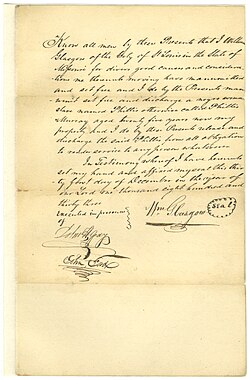 Know all men by these Presents that I William
Glasgow of the City of St Louis in the State of
Missouri for divers good causes and considera-
tions me thereunto moving have manumitted
and set free and I do by these Presents manu-
mit set free and discharge a negro woman
slave named Phillis otherwise called Phillis
Murray aged twenty five years now my
property and I do by these Presents release and
discharge the said Phillis from all obligation
to render service to any person whatsoever
In Testimony whereof I have hereunto
set my hand and affixed my seal this thir-
ty first day of December in the year of
our Lord one thousand eight hundred and
thirty three
Executed in presence
of
Wm. Glasgow
Seal
John